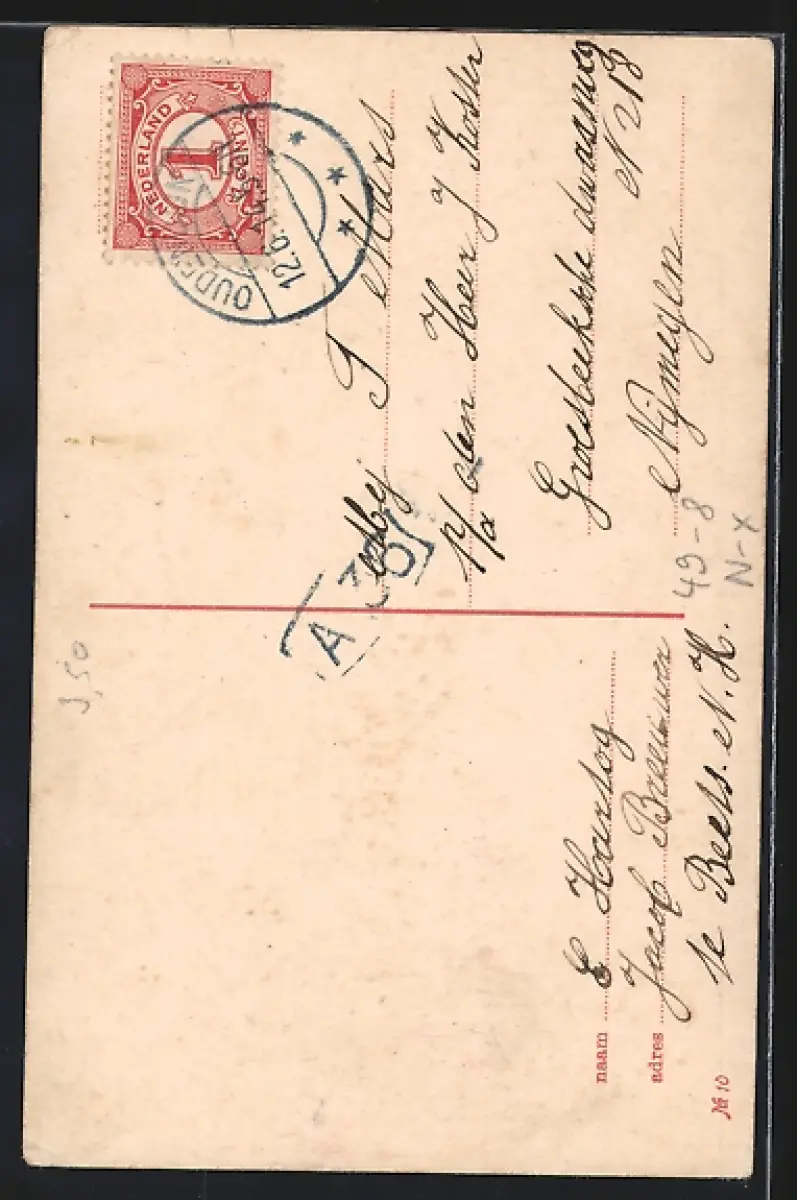 NEDERLAND
1
CENT
OUDE
12.6.
A 30
Mej T Mars
p/a den Heer J Koster
Groesbeeksche dwarsweg
N 213
Nijmegen
49-8
N-x
3,50
naam E Hartog
adres Jacob
te Beets. N. H.
№ 10